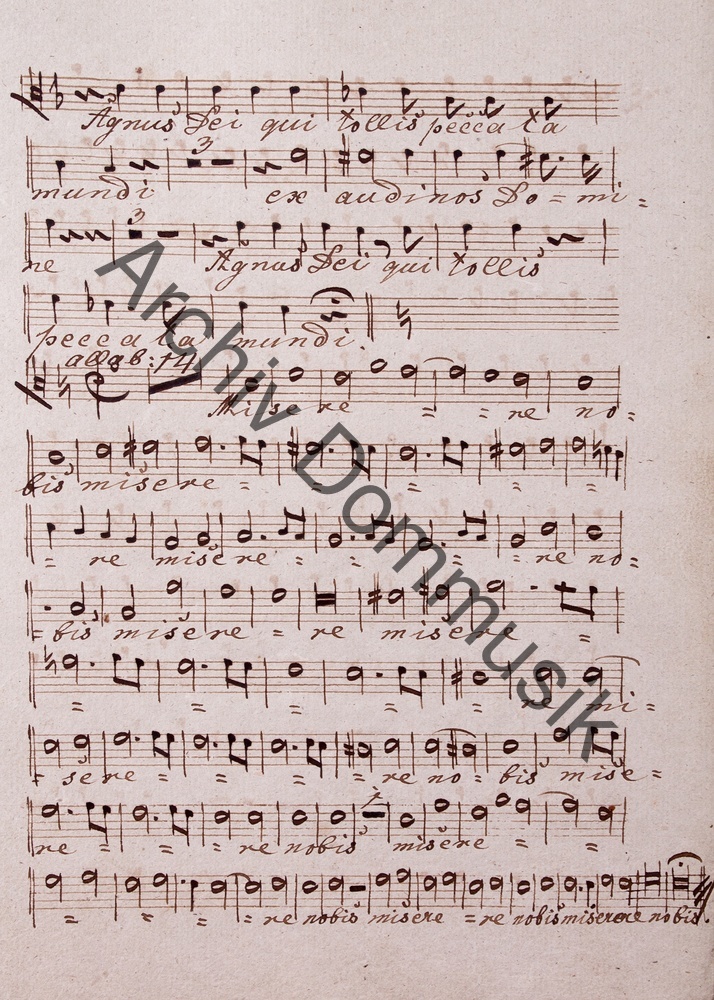 Agnus Dei qui tollis pecca ta
mundi 3 ex audi nos Do = mi =
ne 3 Agnus Dei qui tollis
pecca ta mundi.
allab: 14
Mi se re = = re no =
bis misere = = = =
= re misere = = = = re no =
= bis misere = re misere =
= = = = re mi =
= sere = = = = re no = bis mise =
re = = = re nobis 1 misere = =
= = = = re nobis misere = re nobis miserere nobis.
Archiv Dommusik